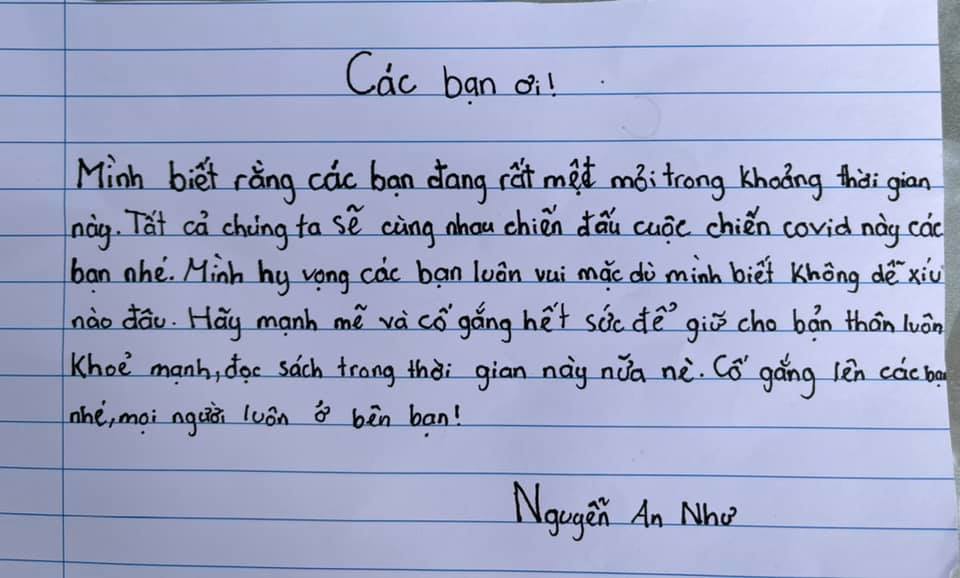 Các bạn ơi!
Mình biết rằng các bạn đang rất mệt mỏi trong khoảng thời gian
này. Tất cả chúng ta sẽ cùng nhau chiến đấu cuộc chiến covid này các
bạn nhé. Mình hy vọng các bạn luôn vui mặc dù mình biết không dễ xíu
nào đâu. Hãy mạnh mẽ và cố gắng hết sức để giữ cho bản thân luôn
khoẻ mạnh, đọc sách trong thời gian này nữa nè. Cố gắng lên các bạn
nhé, mọi người luôn ở bên bạn!
Nguyễn An Như